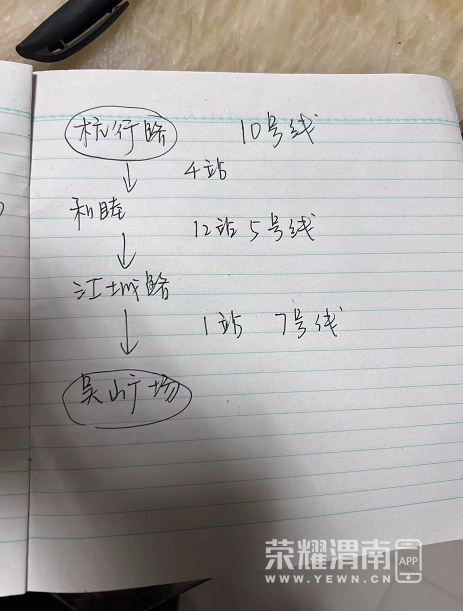 杭行路 10号线
4站
和睦
12站 5号线
江城路
1站 7号线
吴山广场
荣耀渭南 APP
WWW.YEWN.CN